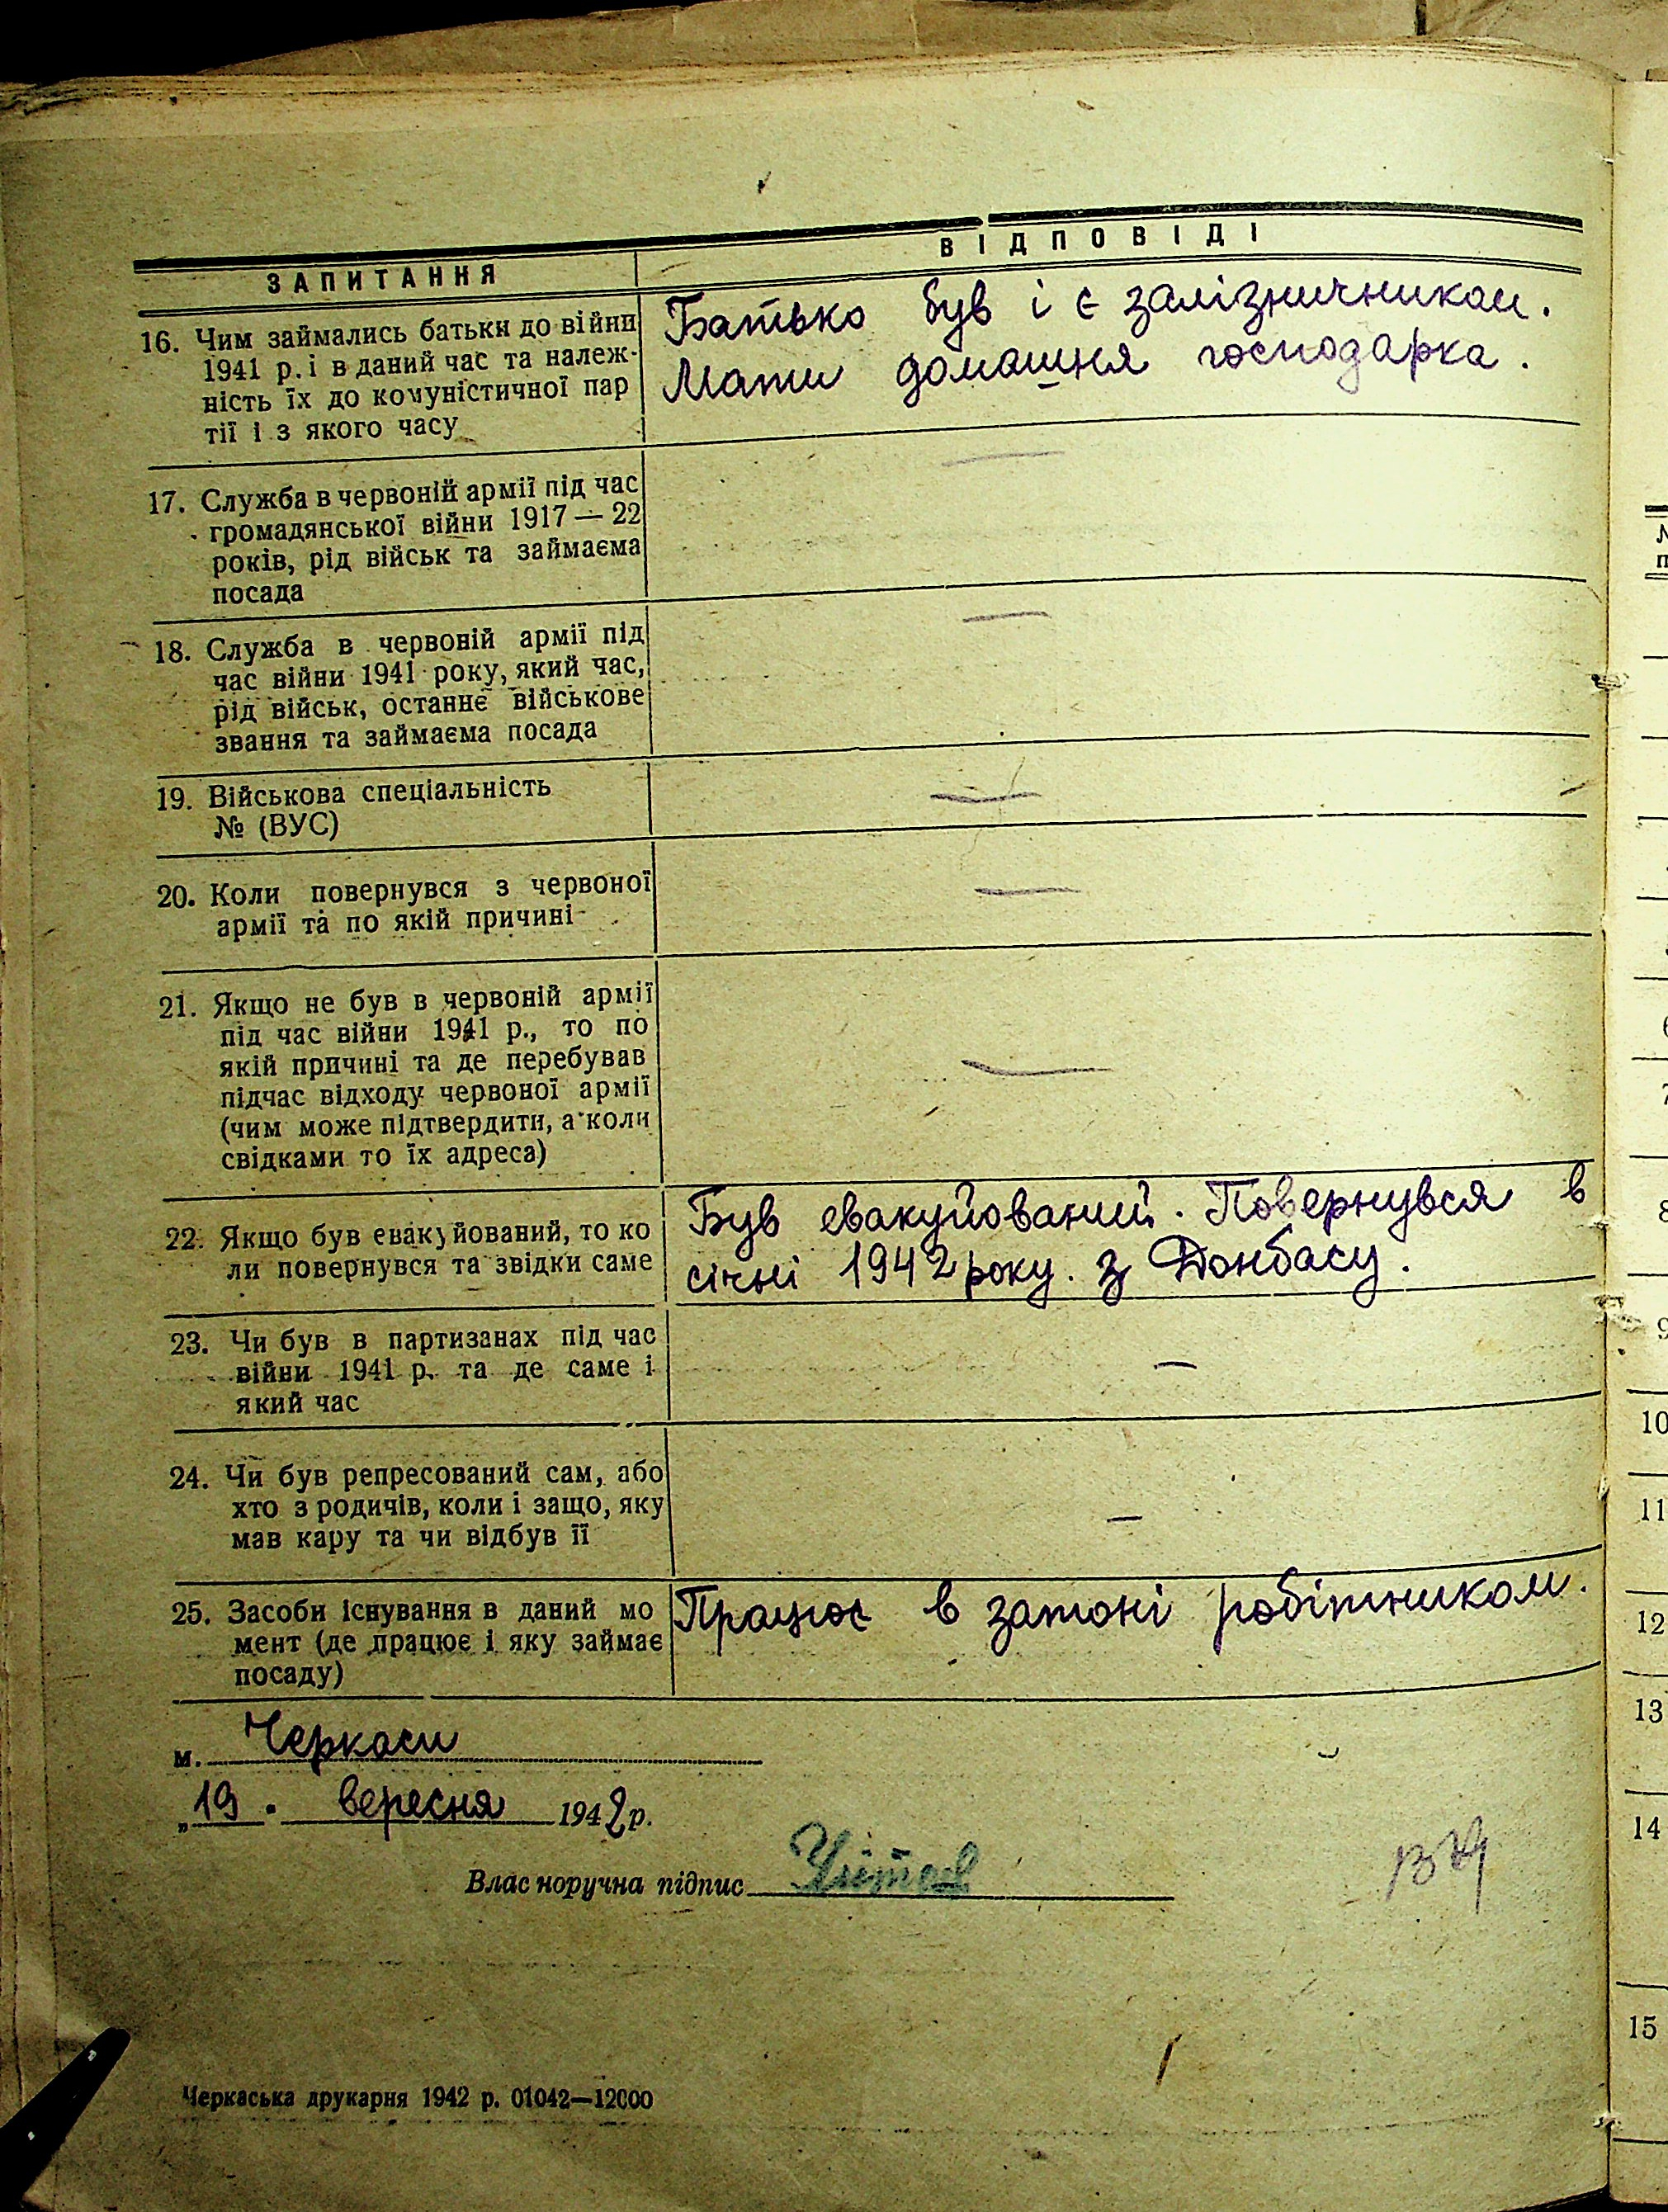 ЗАПИТАННЯ
ВІДПОВІДІ
16. Чим займались батьки до війни
1941 р. і в даний час та належ-
ність їх до комуністичної пар
тії і з якого часу
Батько був і є залізничником.
Мати домашня господарка.
17. Служба в червоній армії під час
громадянської війни 1917 — 22
років, рід військ та займаєма
посада
—
18. Служба в червоній армії під
час війни 1941 року, який час,
рід військ, останнє військове
звання та займаєма посада
—
19. Військова спеціальність
№ (ВУС)
—
20. Коли повернувся з червоної
армії та по якій причині
—
21. Якщо не був в червоній армії
під час війни 1941 р., то по
якій причині та де перебував
підчас відходу червоної армії
(чим може підтвердити, а коли
свідками то їх адреса)
—
22. Якщо був евакуйований, то ко
ли повернувся та звідки саме
Був евакуйований. Повернувся в
січні 1942 року. з Донбасу.
23. Чи був в партизанах під час
війни 1941 р. та де саме і
який час
—
24. Чи був репресований сам, або
хто з родичів, коли і защо, яку
мав кару та чи відбув її
—
25. Засоби існування в даний мо
мент (де працює і яку займає
посаду)
Працює в затоні робітником.
м. Черкаси
„19. вересня 1942 р.
Власноручна підпис
Черкаська друкарня 1942 р. 01042—12000
№
п
6
7
8
9
10
11
12
13
14
15